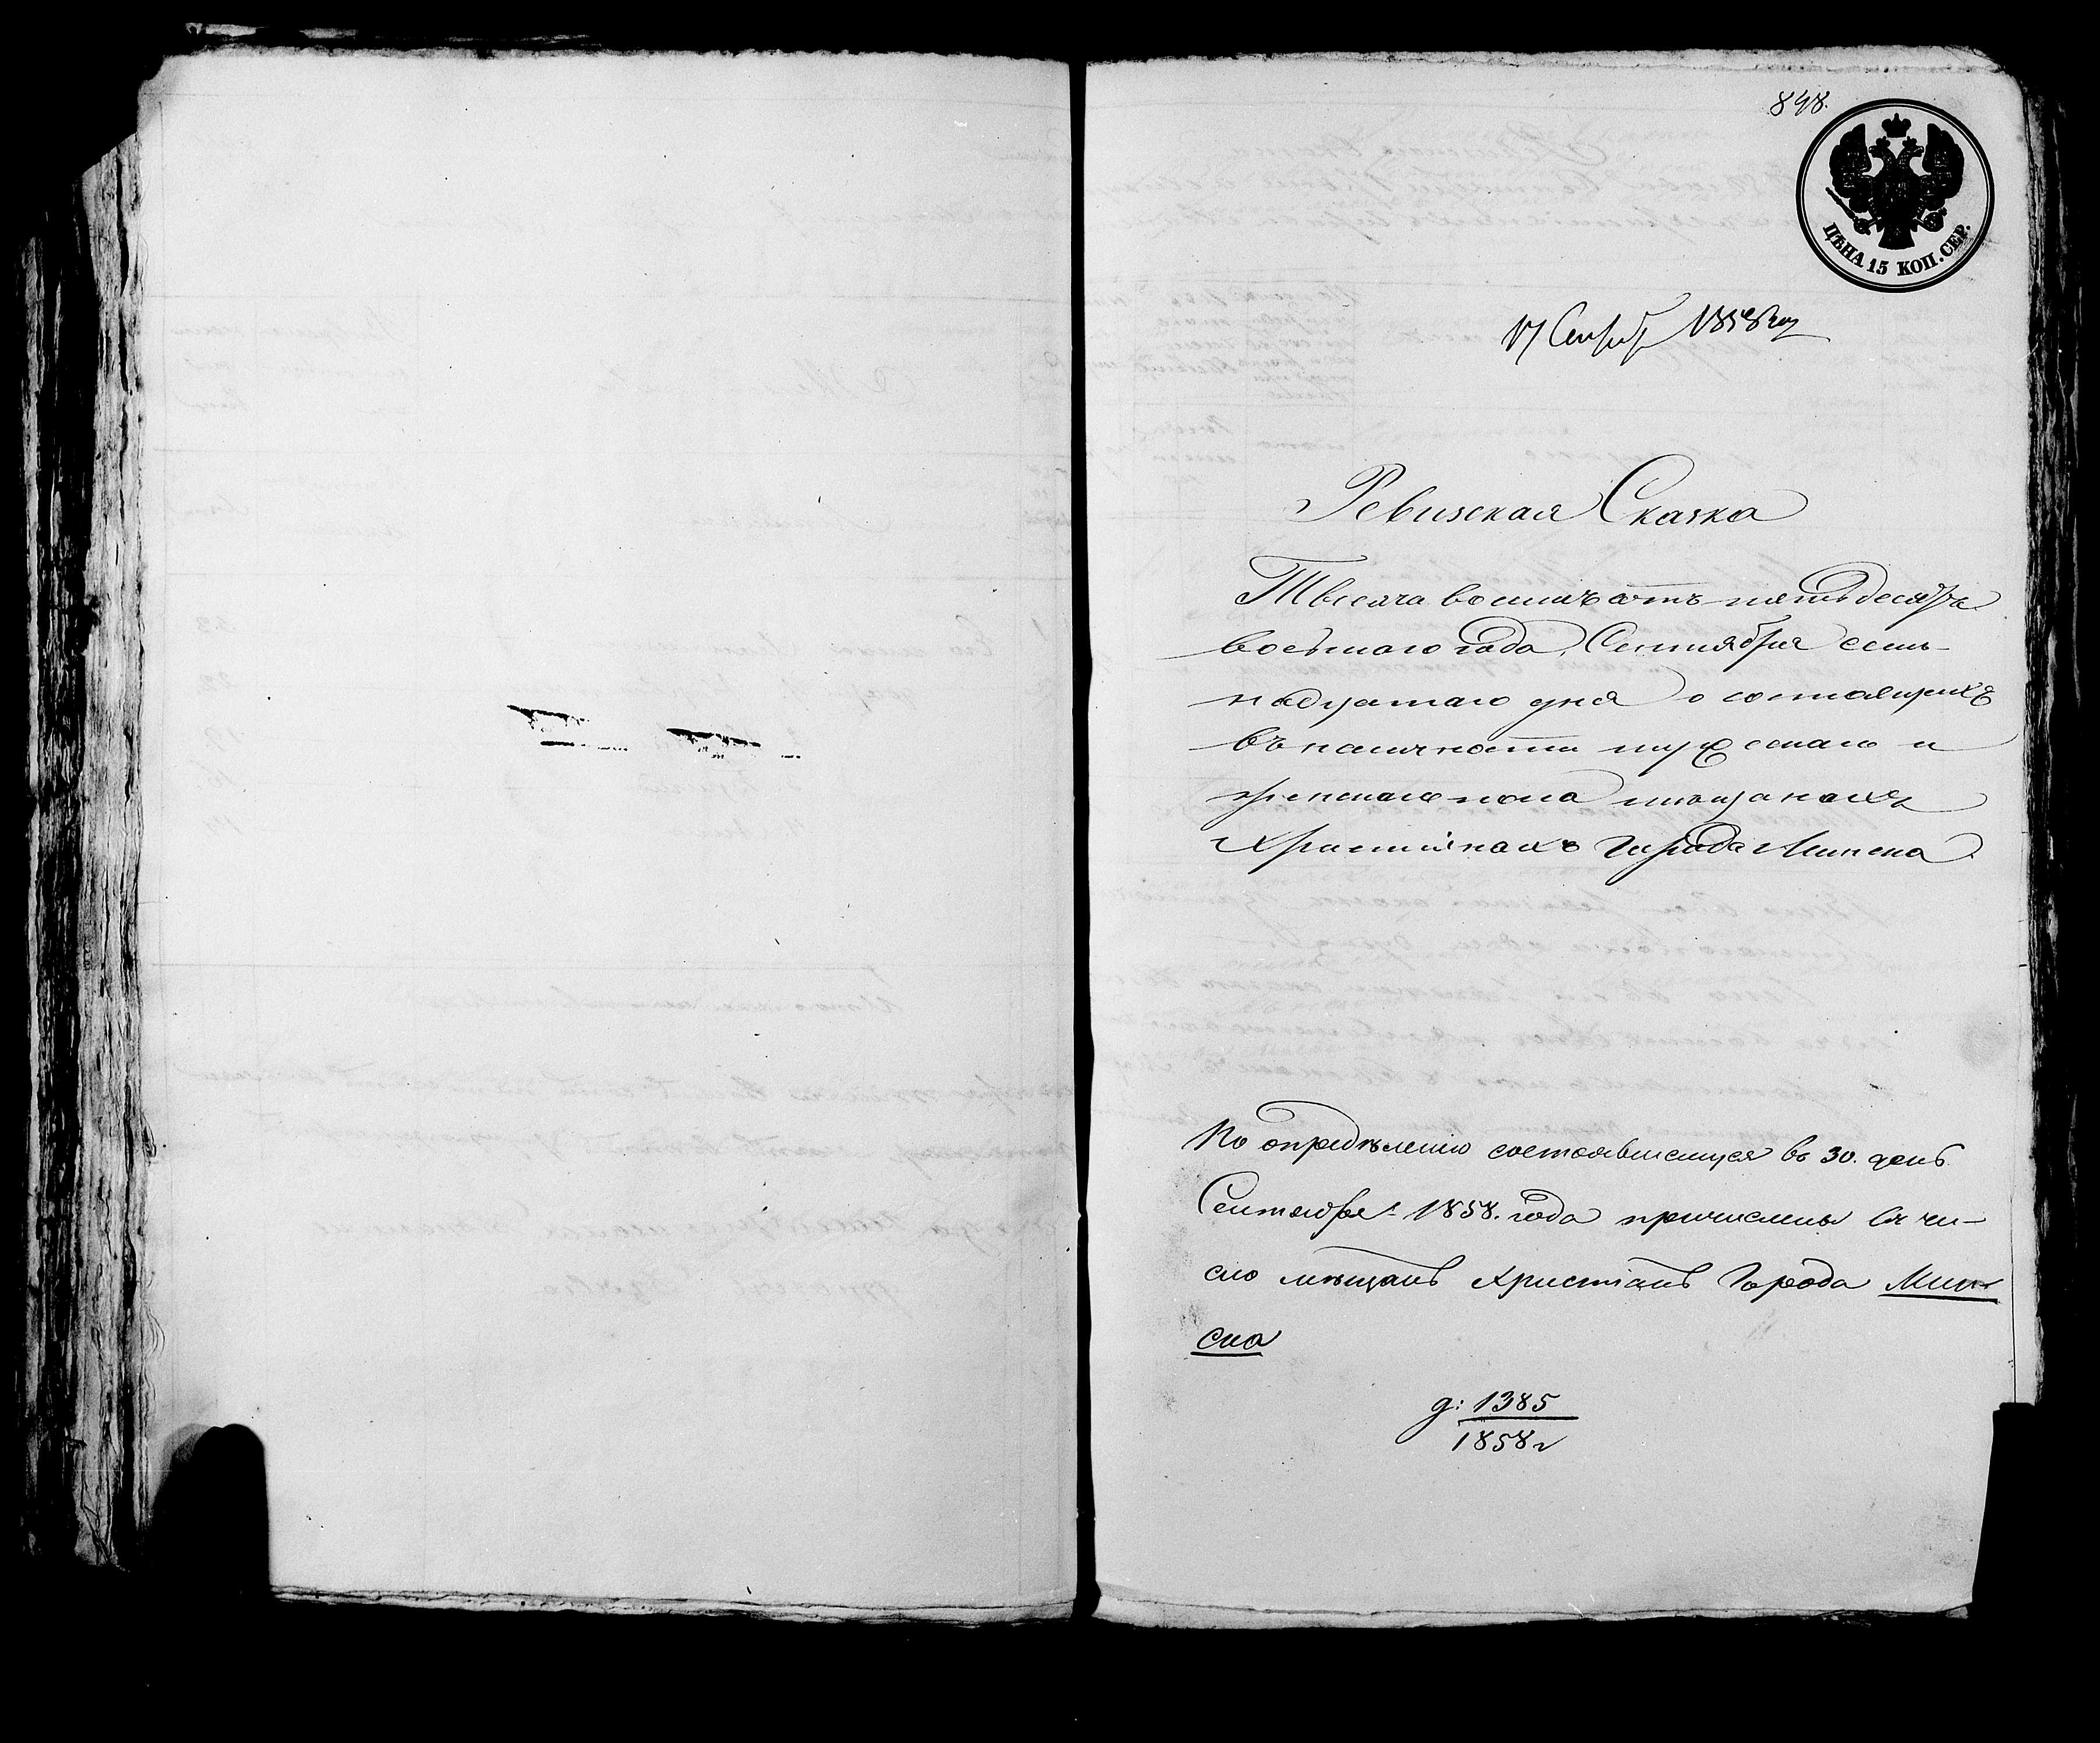 848.
ЦѢНА 15 КОП. СЕР.
17 Сентяб 1858 год
Ревизская Сказка
Тысяча восемъ сотъ пятьдесятъ
восьмаго года, Сентября семь-
надцатаго дня о состоящихъ
въ наличности мужескаго и
женскаго пола мѣщанахъ
Христіянахъ Города Минска
По опредѣленію состоявшемуся въ 30. день
Сентября 1858. года причислены въ чи-
сло мѣщанъ Христіанъ Города Мин-
ска
д: 1385
1858 г